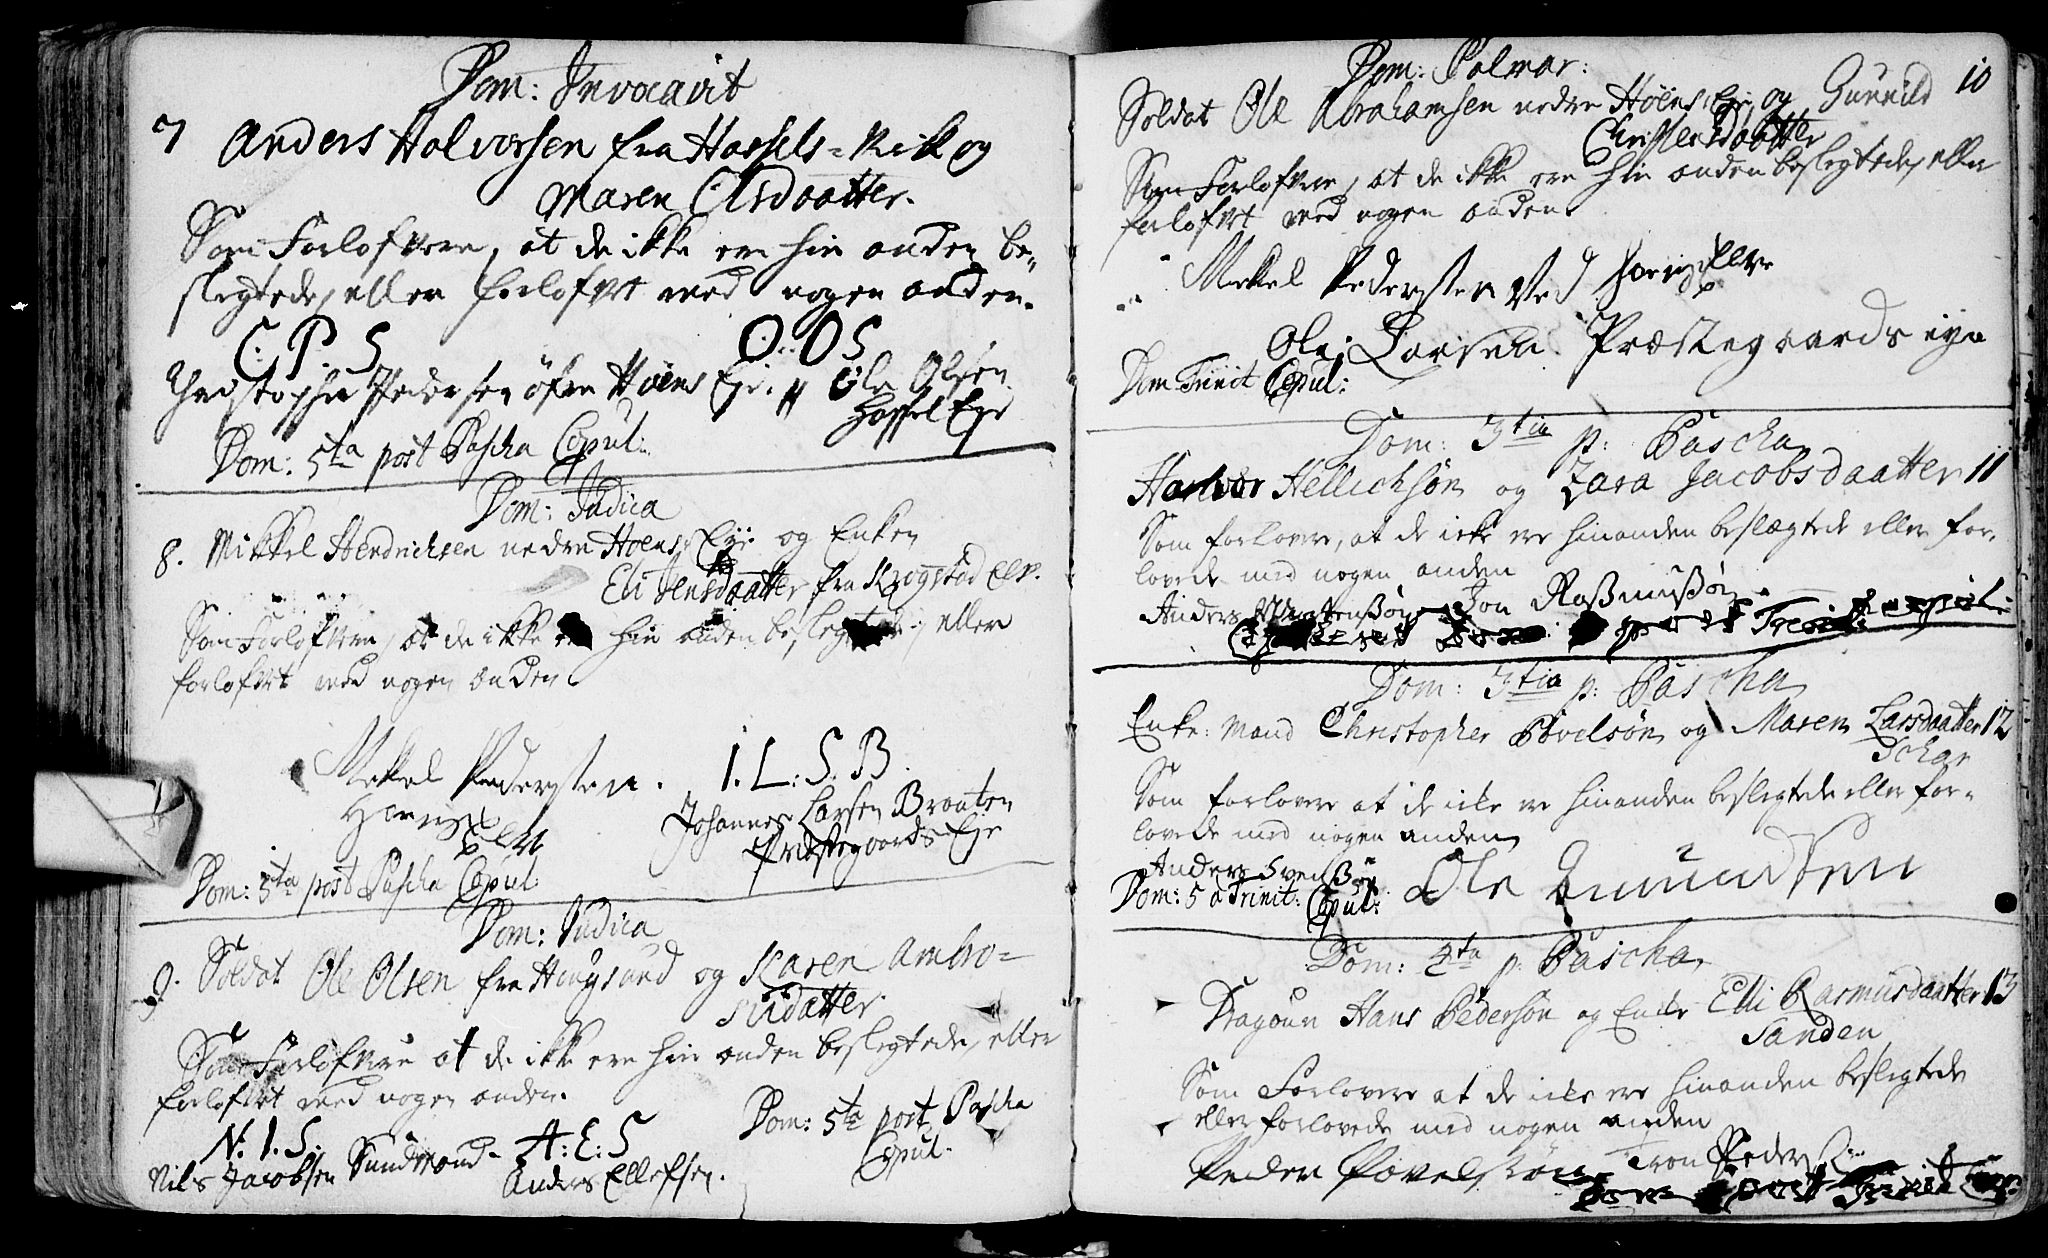 Dom: Invocavit
7 Anders Halvorsen fra Hassels-Kik og
Maren Olsdaatter.
Som Forlofvere, at de ikke ere hin anden be-
slegtede, eller forlofvet med nogen anden.
C. P. S O.. O S
Christopher Pedersen öfre Höens Eje. Ole Olsen
Hassel Eje
Dom: 5ta post Pascha Copul:
Dom: Judica
8. Mikkel Hendrichsen nedre Hoens Eje og Enken
Eli Jensdaatter fra Krogstad Elv.
Som Forlofvere, at de ikke hin anden beslegtede, eller
forlofvet med nogen anden.
Mekel Pedersten. I. L: S. B.
Johannes Larsen Braaten
Præstegaards Eje
Dom: 5ta post Pascha Copul:
Dom: Judica
9. Soldat Ole Olsen fra Haugsund og Karen Ambro-
sidatter.
Som Forlofvere at de ikke ere hin anden beslegtede, eller
forlofvet med nogen anden.
N. I. S. A: E: S Dom: 5ta post Pascha
Nils Jacobsen Sundmand- Anders Ellefsen. Copul.
Dom: Palmar:
Soldat Ole Abrahamsen nedre Höens Eje og Gunnild 10
Christensdaatter
Som Forlofvere, at de ikke ere hin anden beslegtede, eller
forlofvet med nogen anden.
Mekel Pedersten Ved
Ole Larsen. Præstegaards eye
Dom Trinit Copul:
Dom: 3tia p: Pascha
Halvor Hellichsøn og Zara Jacobsdaatter 11
Som forlovere, at de icke ere hinanden beslægtede eller for-
lovede med nogen anden
Anders Jon Rasmusøn
Dom: 3tia p: Pascha
Enke: Mand Christopher Povelsøn og Maren Larsdaatter 12
Som forlovere at de icke ere hinanden beslegtede eller for-
lovede med nogen anden
Anders Svensøn
Dom: 5 a Trinit: Copul: Ole
Dom: 4ta p: Pascha
Dragoun Hans Pedersøn og Enke Elli Rasmusdaatter 13
Sanden
Som Forlovere at de icke ere hinanden beslegtede
eller forlovede med nogen anden
Peder Povelsøn Tron